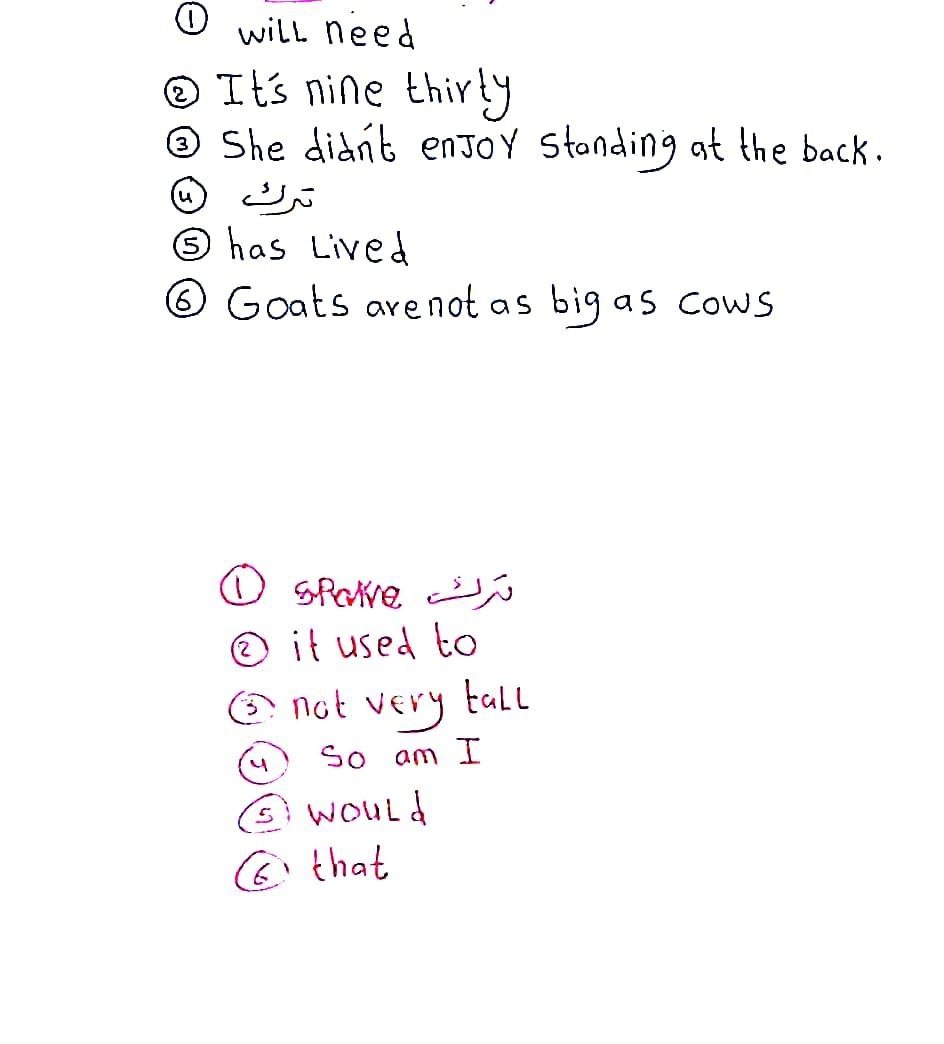 ① will need
② It's nine thirty
③ She didn't enjoy standing at the back.
④ ترك
⑤ has Lived
⑥ Goats are not as big as cows
① ترك
② it used to
③ not very tall
④ So am I
⑤ would
⑥ that